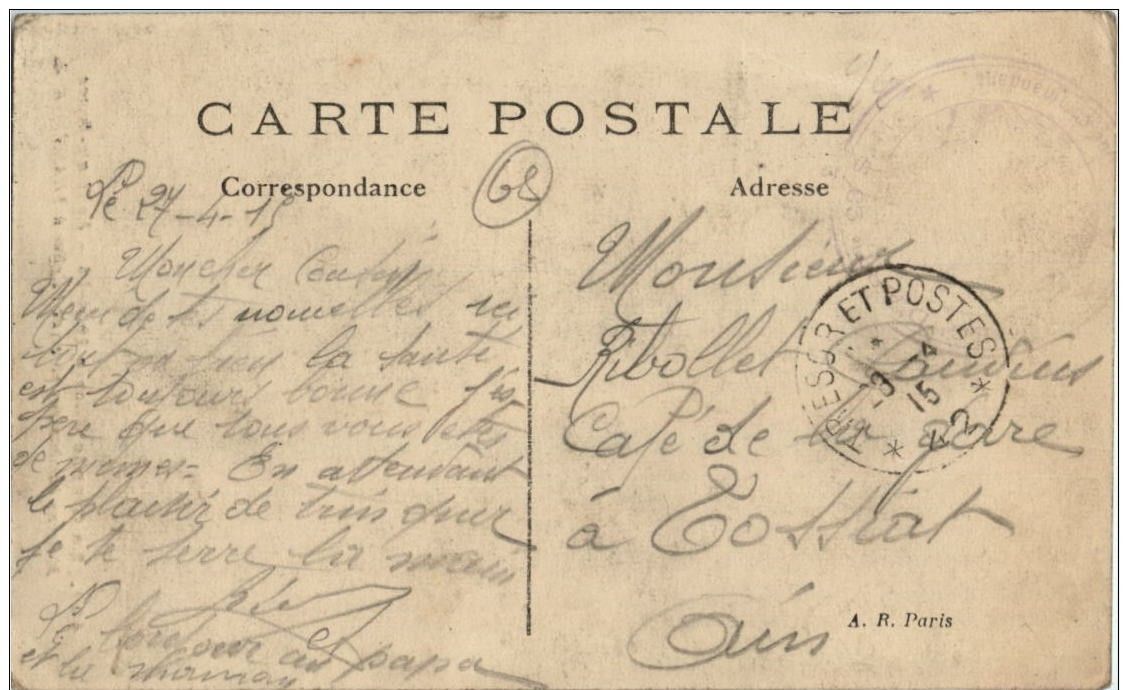 CARTE POSTALE
Correspondance
Le 27-4-15
Mon cher
de tes nouvelles
la santé
est toujours bonne j'es
pere que tous vous etes
de memes= En attendant
le plaisir de trinquer
je te serre la main
bonjour au papa
et la maman
Adresse
Monsieur
Ribollet
Café de la gare
à Tossiat
Ain
TRESOR ET POSTES
* 29 4 15 *
A. R. Paris
68